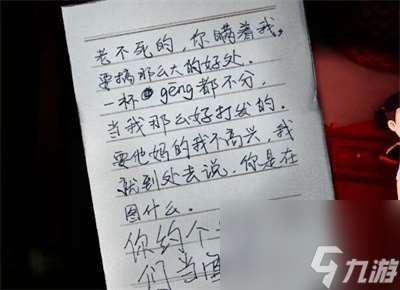 老不死的,你瞒着我,
要搞那么大的好处.
一杯 gēng都不分.
当我那么好打发的.
要他妈的我不高兴,我
就到处去说.你是在
图什么.
你约个
们当
九游